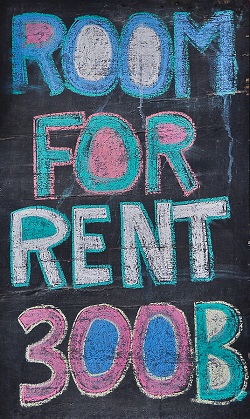 ROOM
FOR
RENT
300B